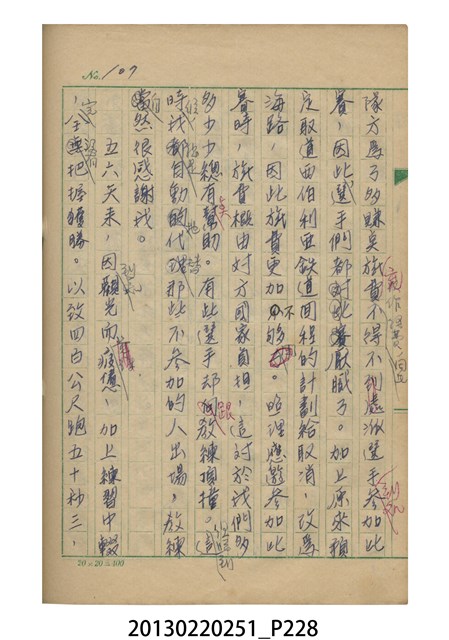 No. 107
隊方為了多賺臬旅費不得不到處派選手參加此
賽，因此選手們都對此賽厭膩了。加上原來預
定取道西伯利亞鐵道回程的計劃給取消，改為
海路，因此旅費更加不夠。照理應邀參加此
賽時，旅費概由對方國家負担，這對於我們多
多少少總有幫助。有此選手却跟教練頂撞。這
時我都自動的代理那些不參加的人出場，教練
當然很感謝我。
五六天來，因觀光而疲憊，加上練習中輟
，全無把握獲勝。以致四百公尺跑五十秒三，
20×20=400
20130220251_P228